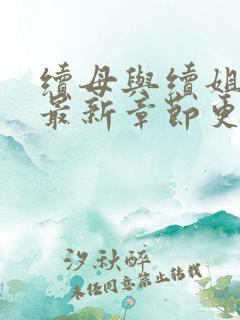 續母與續姐
最新章節更
汐秋醉
未经同意禁止转载